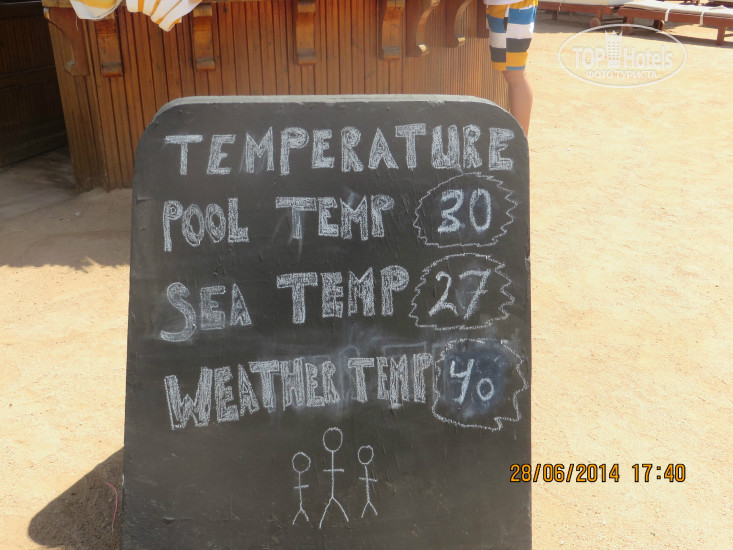 TOPHotels
ФОТОТУРИСТА
TEMPERATURE
POOL TEMP 30
SEA TEMP 27
WEATHER TEMP 40
28/06/2014 17:40